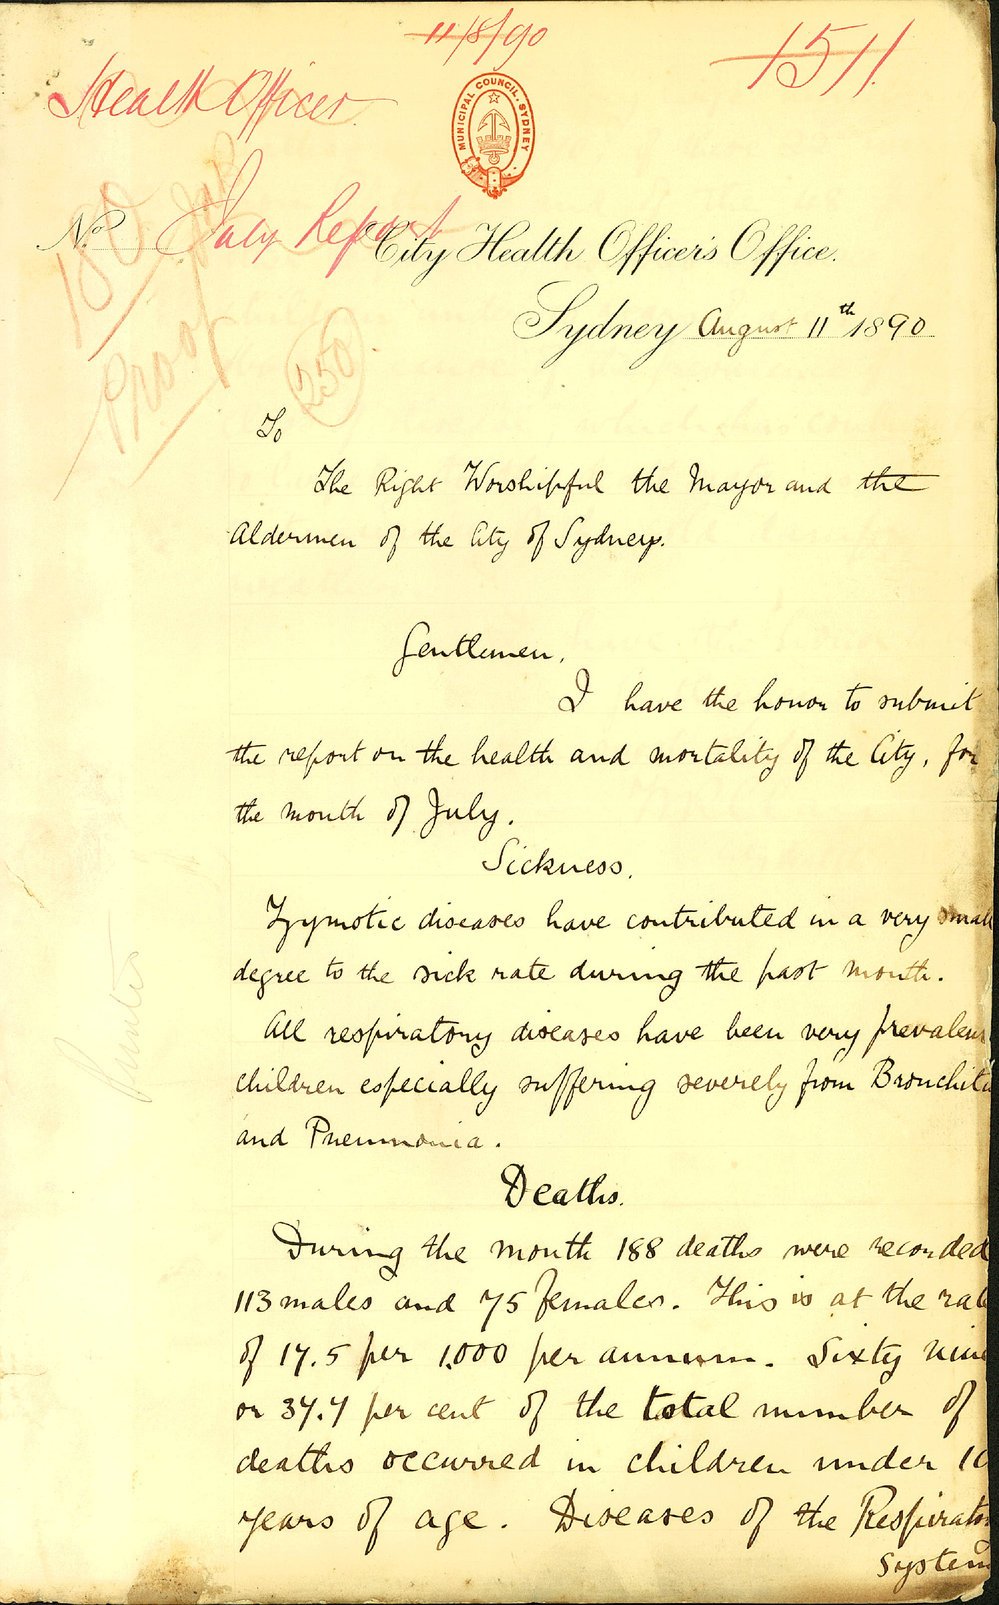 11/8/90
1511
Health Officer
MUNICIPAL COUNCIL. SYDNEY
No July Report
City Health Officer's Office.
Proof
250
Sydney August 11th 1890
To
The Right Worshipful the Mayor and the
Aldermen of the City of Sydney.
Gentlemen,
I have the honor to submit
the report on the health and mortality of the City, for
the month of July.
Sickness.
Zymotic diseases have contributed in a very small
degree to the sick rate during the past month.
All respiratory diseases have been very prevalent
children especially suffering severely from Bronchitis
and Pneumonia.
Deaths.
During the month 188 deaths were recorded
113 males and 75 females. This is at the rate
of 17.5 per 1,000 per annum. Sixty nine
or 37.7 per cent of the total number of
deaths occurred in children under 10
years of age. Diseases of the Respiratory
System